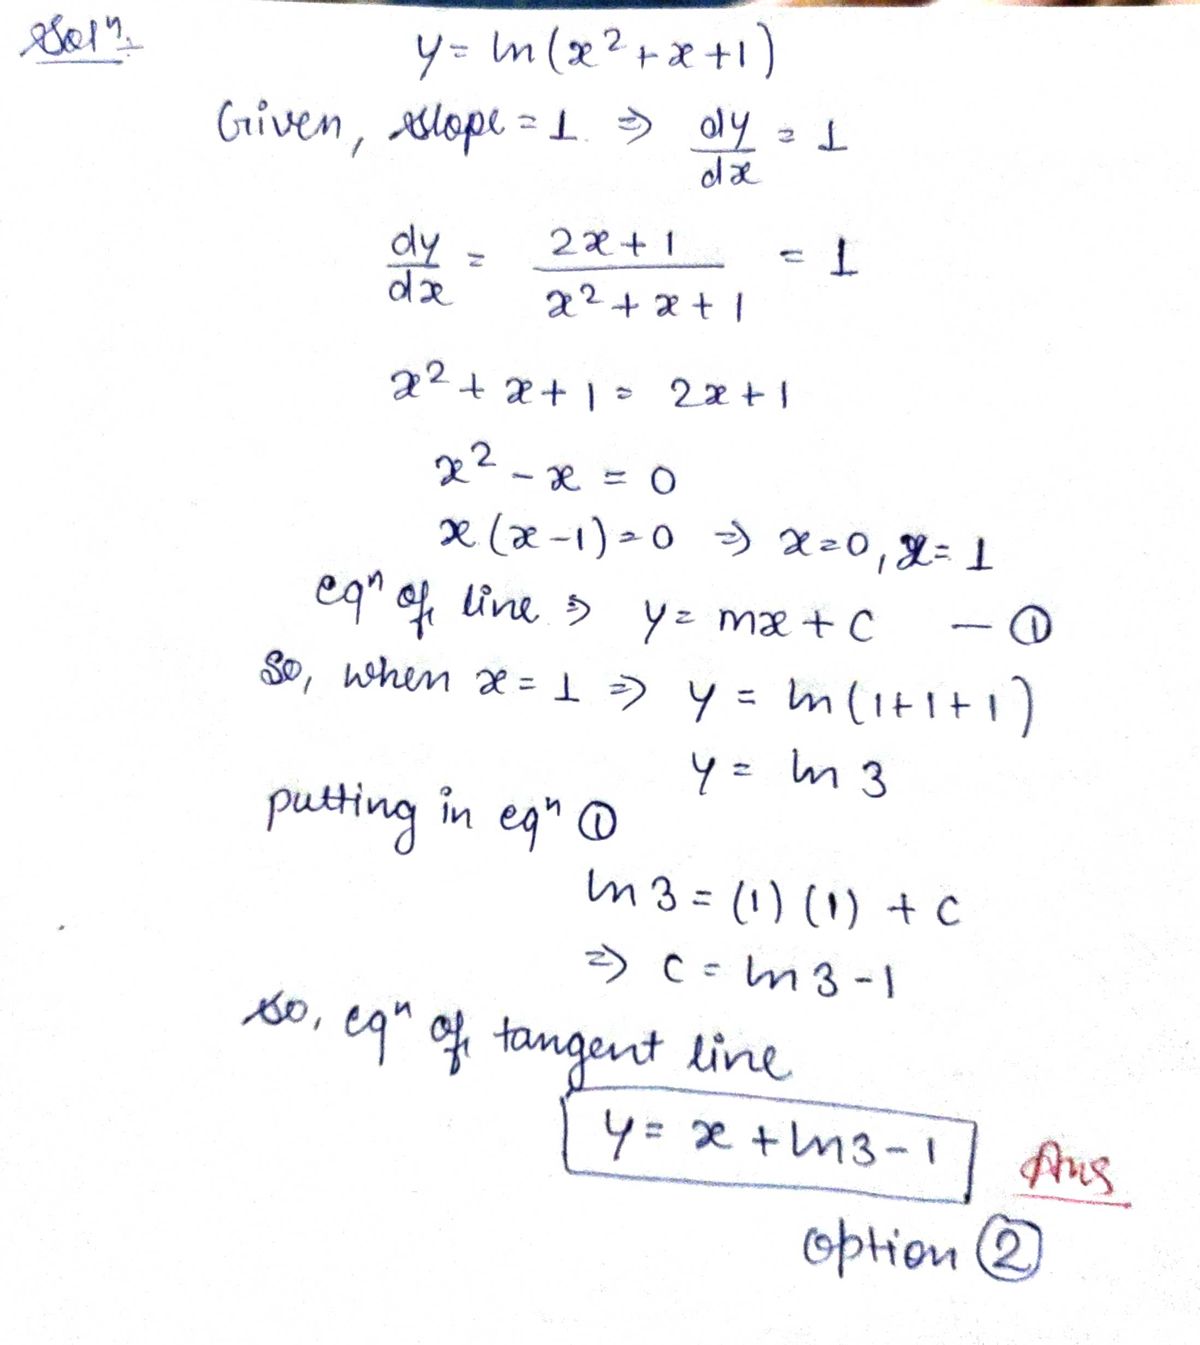 Solⁿ.
y = ln(x² + x + 1)
Given, slope = 1. ⇒ dy/dx = 1
dy/dx = (2x + 1)/(x² + x + 1) = 1
x² + x + 1 = 2x + 1
x² - x = 0
x(x - 1) = 0 ⇒ x = 0, x = 1
eqⁿ of line ⇒ y = mx + c — ①
So, when x = 1 ⇒ y = ln(1 + 1 + 1)
y = ln 3
putting in eqⁿ ①
ln 3 = (1) (1) + c
⇒ c = ln 3 - 1
so, eqⁿ of tangent line
y = x + ln 3 - 1 Ans
option ②